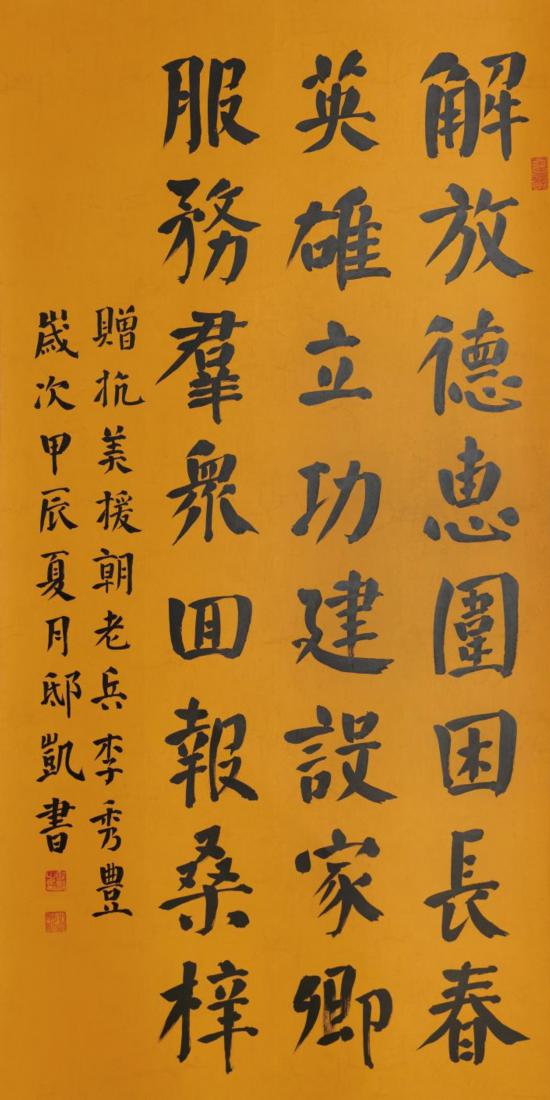 解放德惠圍困長春
英雄立功建設家鄉
服務羣衆回報桑梓
贈抗美援朝老兵李秀豊
歲次甲辰夏月邸凱書